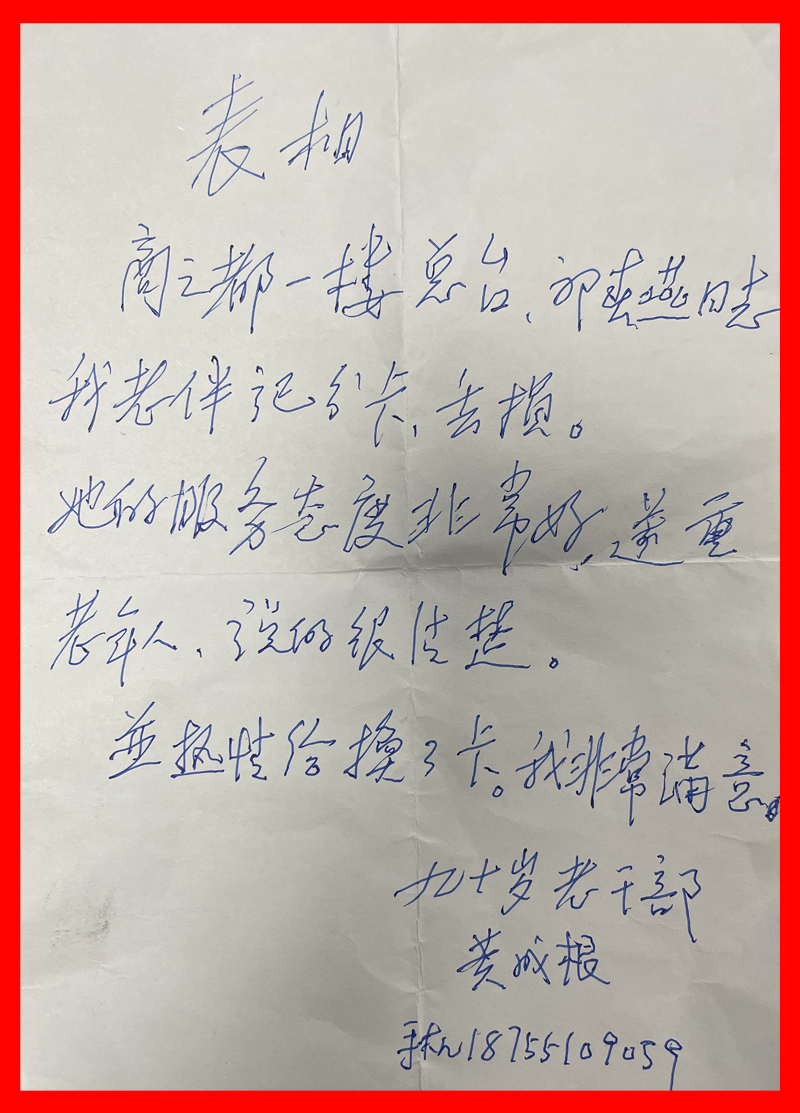 表相
商之都一楼总台、邵春燕同志
我老伴记分卡、去损。
她的服务态度非常好，遵重
老年人、说的很清楚。
並热情给换了卡。我非常满意。
九十岁老干部
黄成根
手机18755109059